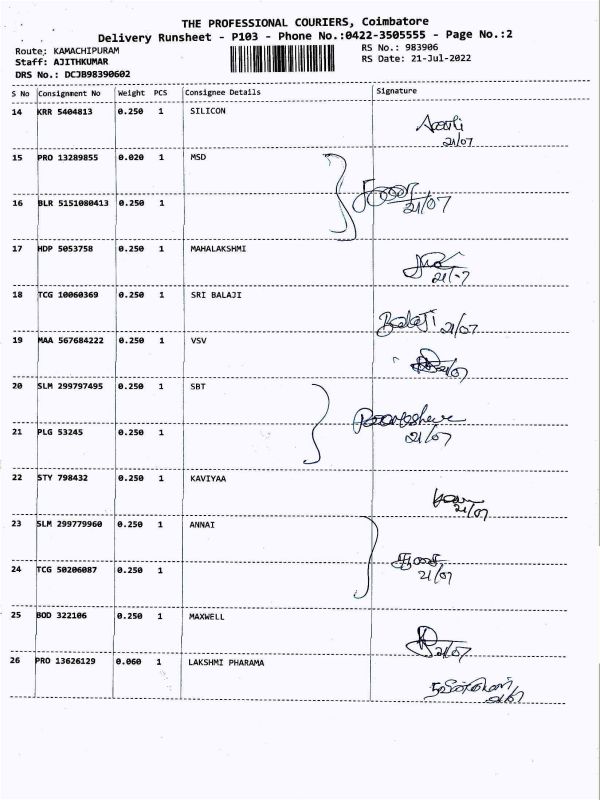 THE PROFESSIONAL COURIERS, Coimbatore
Delivery Runsheet - P103 - Phone No.:0422-3505555 - Page No.:2
Route: KAMACHIPURAM
RS No.: 983906
Staff: AJITHKUMAR
RS Date: 21-Jul-2022
DRS No.: DCJB98390602
S No Consignment No Weight PCS Consignee Details Signature
14 KRR 5404813 0.250 1 SILICON
21/07
15 PRO 13289855 0.020 1 MSD
16 BLR 5151080413 0.250 1
21/07
17 HDP 5053758 0.250 1 MAHALAKSHMI
21/-7
18 TCG 10060369 0.250 1 SRI BALAJI
Balaji 21/07
19 MAA 567684222 0.250 1 VSV
20 SLM 299797495 0.250 1 SBT
21 PLG 53245 0.250 1
21/07
22 STY 798432 0.250 1 KAVIYAA
21/07
23 SLM 299779960 0.250 1 ANNAI
24 TCG 50206087 0.250 1
21/07
25 BOD 322106 0.250 1 MAXWELL
21/07
26 PRO 13626129 0.060 1 LAKSHMI PHARAMA
21/07